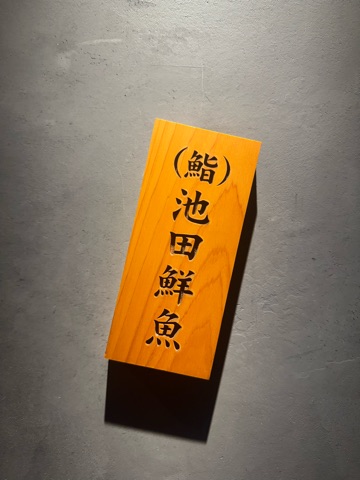 (鮨)
池田鮮魚